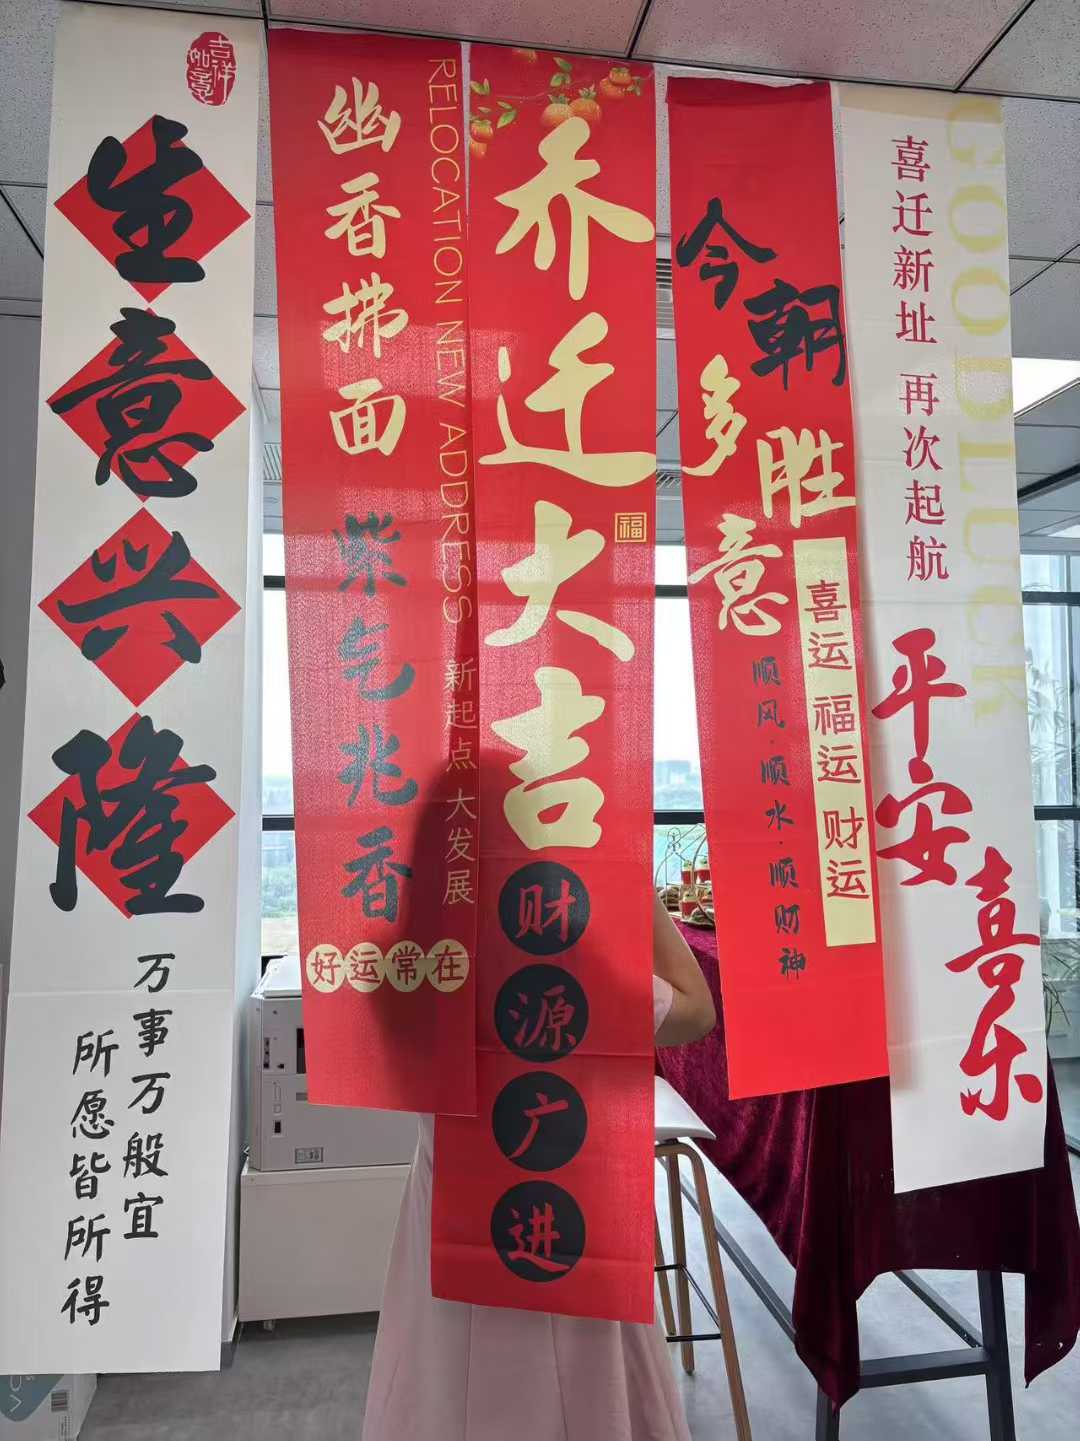 吉祥
如意
生意兴隆
万事万般宜
所愿皆所得
幽香拂面
紫气兆香
好运常在
RELOCATION NEW ADDRESS
新起点 大发展
乔迁大吉
福
财源广进
今朝
多胜
意
喜运 福运 财运
顺风·顺水·顺财神
GOODLUCK
喜迁新址 再次起航
平安喜乐